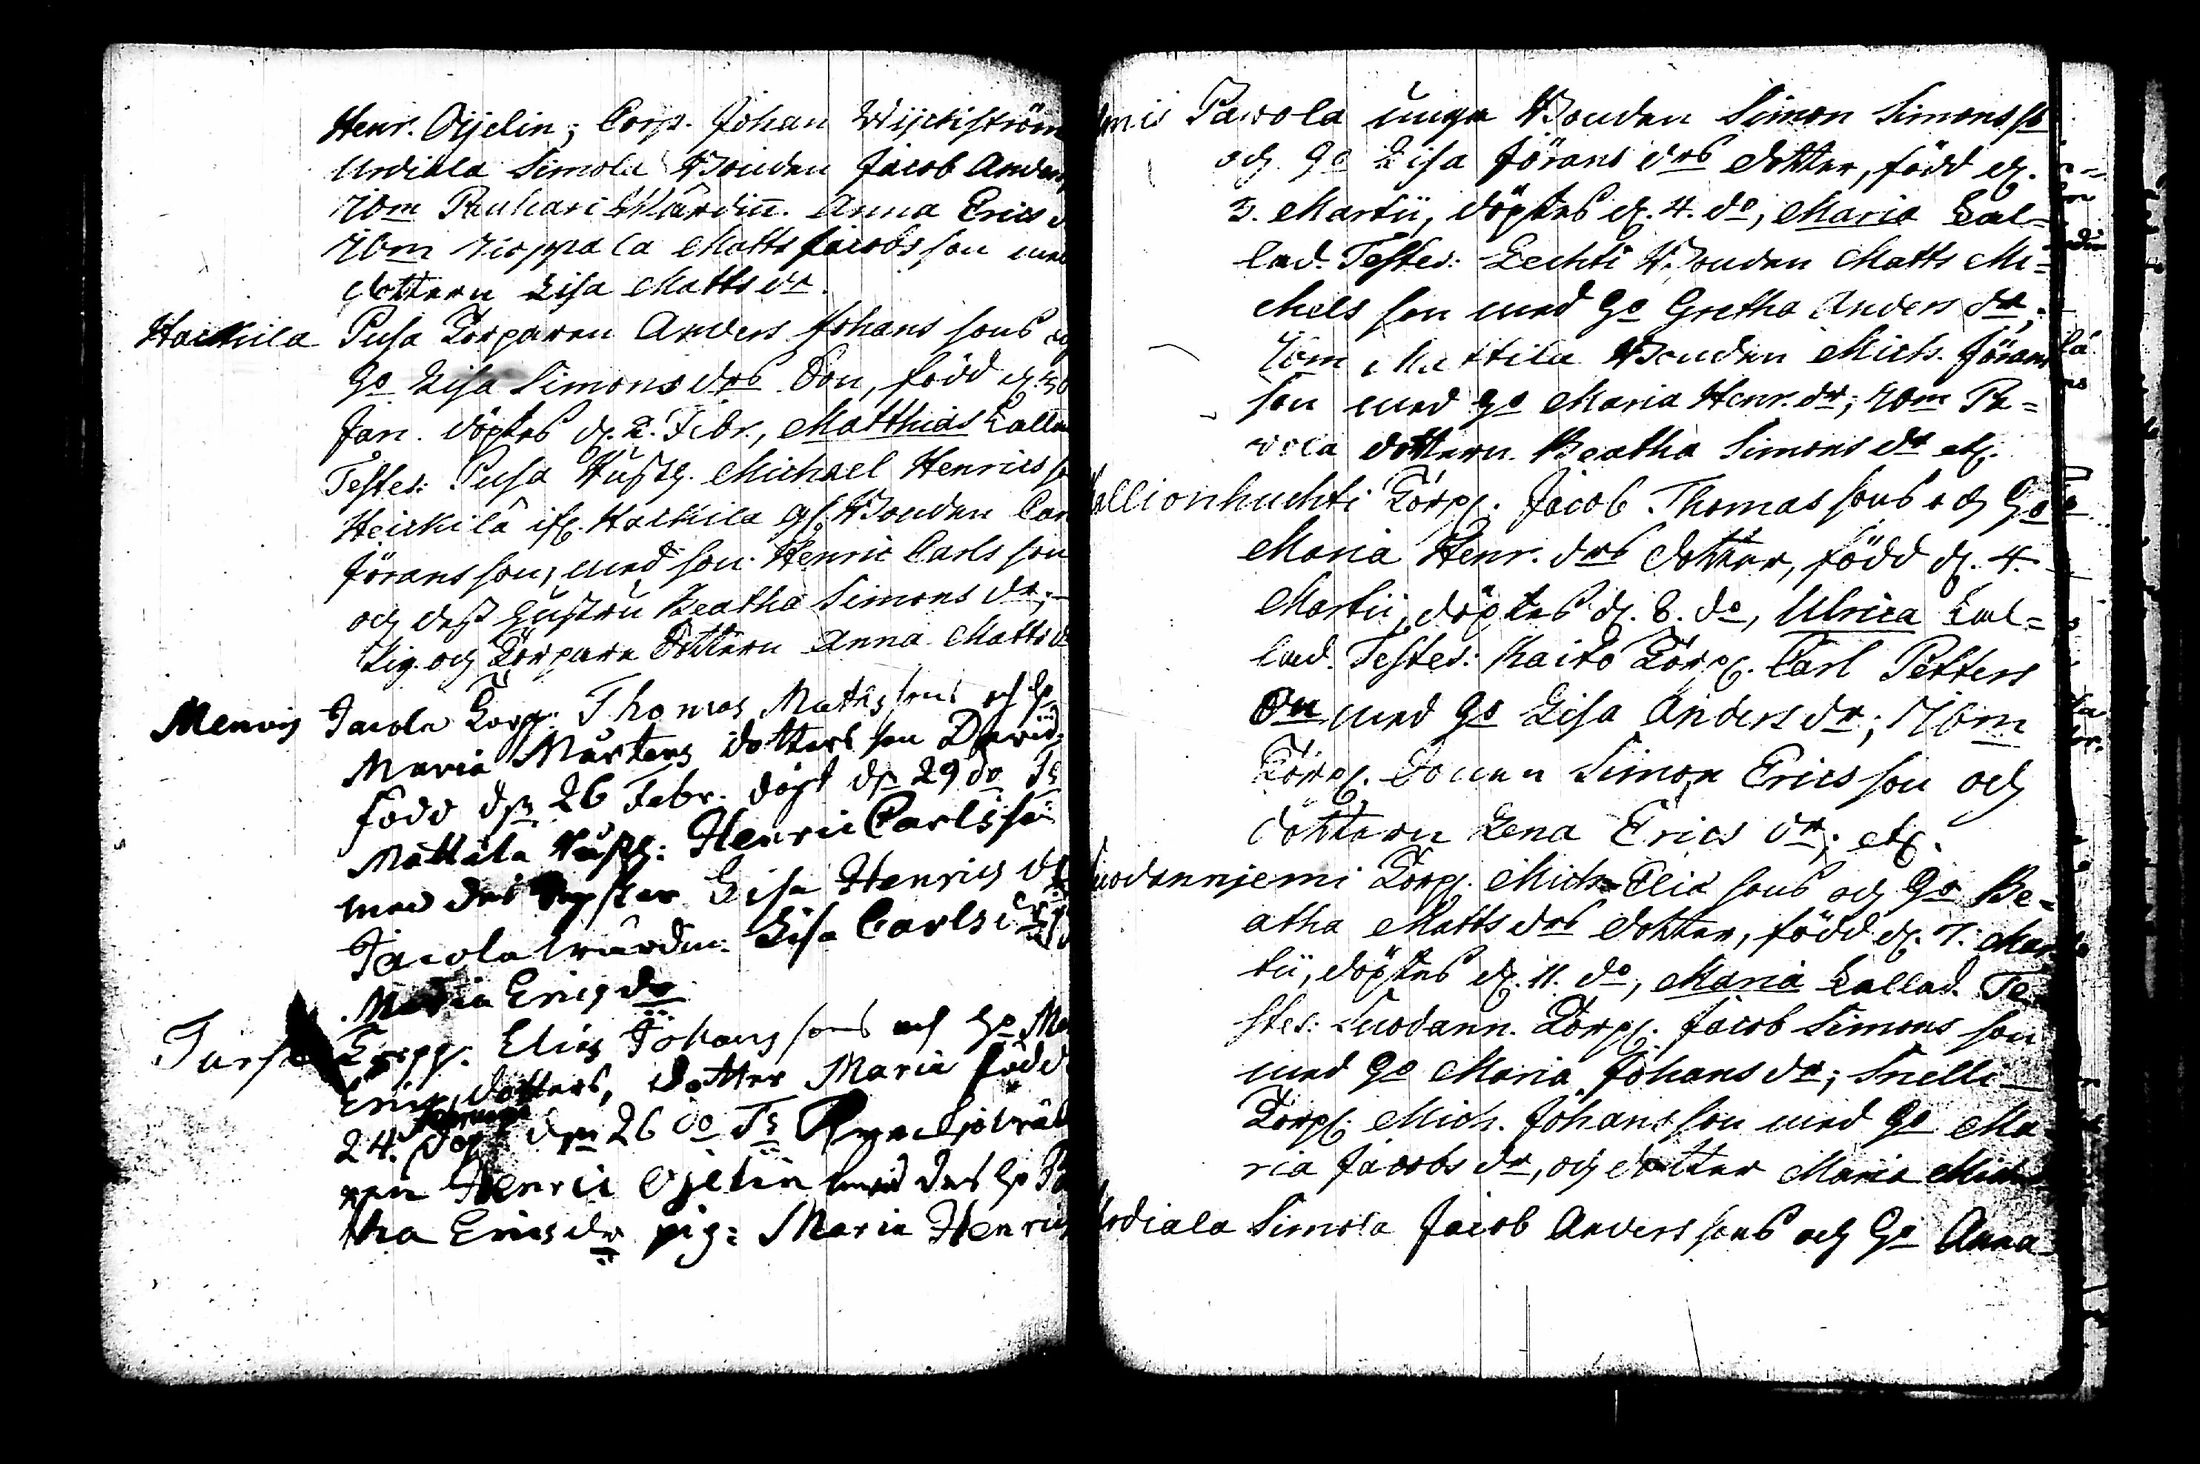 Henr. Oijelin; Corp. Johan Wijckström
Urdiala Simola Bonden Jacob Anders
ibm Pauhari Wärdin. Anna Erics d
ibm Nioppala Matts Jacobs son med
dottern Lisa Matts dr.
Haikkila Pusa Torparen Anders Johans sons och
Ho Lisa Simons drs Son, född d. 30
Jan. döptes d. 2. Febr., Matthias Kallad
Testes: Pusa Husb. Michael Henrics so
Heickilä Haikkila Bonden Carl
Jörans son, med son Henric Carls son
och dess Hustru Beatha Simons dr;
Pig. och Torpare Dottern Anna Matts d
Menois Jacola Torp. Thomas Mathssons och Ho
Maria Mårtens dotters son David
född dn 26 Febr. döpt dn 29 do Ts
Mattila Husb: Henric Carls son
med des Syster Lisa Henrics dr
Jacola Wärdin: Lisa Carls dr
Maria Erics dr
Tursa Torpp. Elias Johans sons och Ho Ma
Erics dotters, dotter Maria född
24. döpt dn 26 do Ts
Henric Ojelin med des Ho
tha Erics dr pig: Maria Henrics
Pawola unga Bonden Simon Simonss
och Ho Lisa Jörans drs dotter, född d.
3. Martii, döptes d. 4. do, Maria Kal=
lad. Testes: Lechti Bonden Matts Mi=
chels son med Ho Gretha Anders dr;
ibm Mattila Bonden Mich. Jörans
son med Ho Maria Henr. dr; ibm Pa=
wola dottern Beatha Simons dr etc.
Kallionhuchti Torp. Jacob Thomas sons och Ho
Maria Henr. drs dotter, född d. 4.
Martii, döptes d. 8. do, Ulrica Kal=
lad. Testes: Kaito Torp. Carl Petters
Son med Ho Lisa Anders dr; ibm
Torp. Sonen Simon Erics son och
dottern Lena Erics dr; etc.
Suodanniemi Torp. Mich. Elia sons och Ho Be=
atha Matts drs dotter, född d. 7. Mar
tii, döptes d. 11. do, Maria Kallad. Te
stes: Suodann. Torp. Jacob Simons son
med Ho Maria Johans dr; Snelli
Torp. Mich. Johans son med Ho Ma
ria Jacobs dr, och dotter Maria Mich
Urdiala Simola Jacob Anders sons och Ho Anna